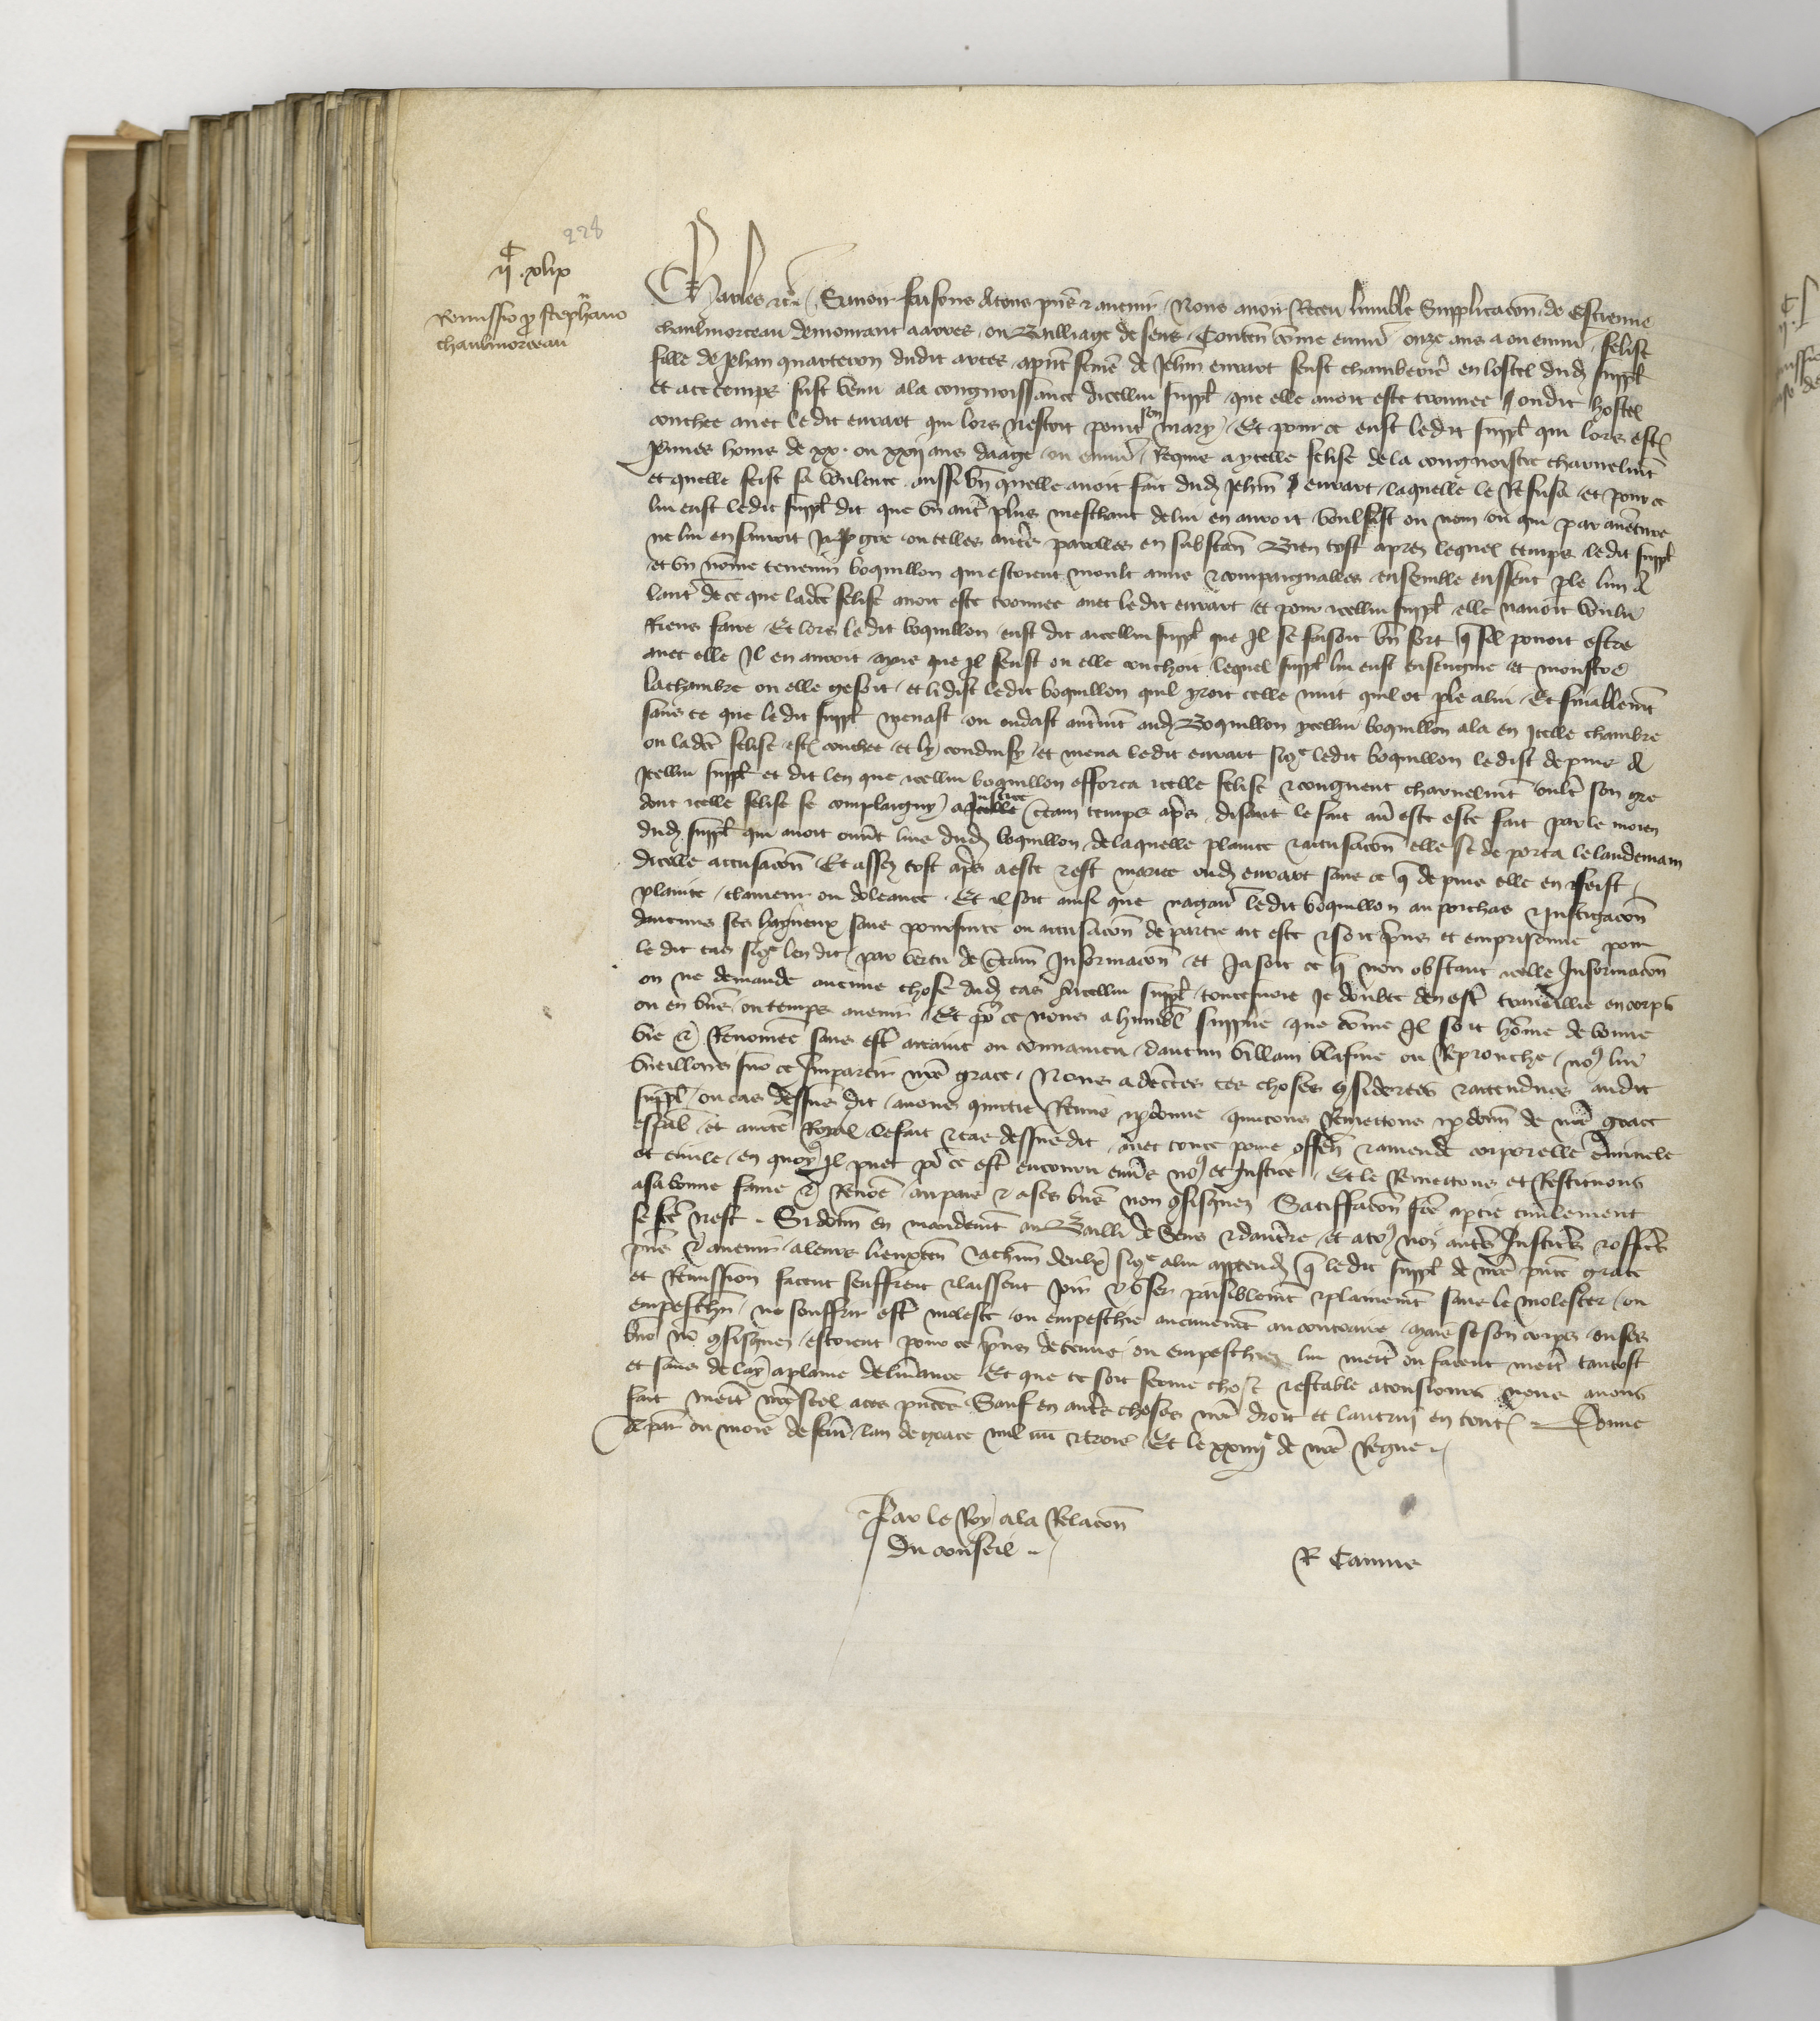 228
ijC xlix
Remissio pro Stephano
chaulmorceau
Charles etc. Savoir faisons a tous pns et avenir / Nous avoir Receu lumble Supplicacon de Estienne
chaulmorceau demourant a arces ou Bailliage de sens / Conten come environ onze ans a ou environ / felise
fille de Jehan quarteron dudit arces apnt feme de Jehan euvart feust chamberiere en lostel dud suppl
et a ce temps fust venu ala congnoissance dicellui suppl que elle avoit este trouvee ou dit hostel
couchee avec ledit euvart qui lors nestoit point son mary / Et pour ce eust ledit suppl qui lors est
Jeunes homs de xx. ou xxij ans daage ou environ / Requis a ycelle felise de la congnoistre charnelment
et quelle feist sa voulente aussi bn quelle avoit fait dud Jehan euvart / laquelle le Refusa et pour ce
lui eust ledit suppl dit que un aut plus meschant de lui en auroit voulsist ou non ou qui par aventure
ne lui en sauroit Ja gre ou telles autres parolles en substan Bien tost apres lequel temps ledit suppl
et un nome tevenin boquillon qui estoient moult amis et compaignables ensemble eussent parle lun a
lautre de ce que ladicte felise avoit este trouvee avec ledit euvart et pour icellui suppl elle navoit voulu
Riens faire / Et lors ledit boquillon eust dit a icellui suppl que Il se faisoit bn fort que sil povoit estre
avec elle Il en auroit mais que Il sceust ou elle couchoit lequel suppl lui eust enseigne et monstre
la chambre ou elle gesoit / et li dist ledit boquillon quil yroit celle nuit quil ot parle a lui / Et finablement
sans ce que ledit suppl menast ou aidast autrement aud Boquillon ycellui boquillon ala en Icelle chambre
ou ladicte felise est couchee et ly conduisy et mena ledit euvart sicome ledit boquillon le dist depuis a
Icellui suppl et dit len que icellui boquillon efforca icelle felise et congneut charnelment oultre son gre
dont icelle felise se complaigny a Justice certain temps apres disant le fait avoir este este fait par le moien
dud suppl qui avoit ouvert luis dud boquillon de laquelle plainte et accusacon elle se deporta le landemain
dicelle accusacon / Et assez tost apres a este et est mariee oud euvart sans ce que depuis elle en feist
plainte / clameur ou doleance / Et il soit ainsi que nagaires ledit boquillon au porchas et Instigacon
daucuns ses haineux sans poursuite ou accusacon de partie ait este et soit prins et emprisonne pour
le dit cas sicome len dit par vertu de certaine Informacon et Jasoit ce que non obstant icelle Informacon
on ne demande aucune chose dud cas a icellui suppl / toutesvois Il doubte den estre travaillie en corps
ou en biens ou temps avenir / Et pour ce nous a humblement supplie que come Il soit home de bonne
vie et Renomee sans estre attaint ou convaincu daucun villain blasme ou Reprouche / nous lui
vueillons sur ce Impartir nre grace / Nous adecertes ces choses considerees et attendues audit
suppl ou cas dessus dit avons quictie Remis et pardonne quictons Remettons et pardonnons de nre grace
especial et auctorite Royal le fait et cas dessusdit avec toute peine offense et amende corporelle criminele
et civile en quoy Il puet pour ce estre encouru envers nous et Justice / Et le Remettons et Restituons
a sa bonne fame et Renomee au pais et a ses biens non confisquez Satisffacon faicte a partie civilement
se faicte nest . Si donnons en mandement au Bailli de Sens et dautrre et a tous noz autres Justiciers et officiers
pns et avenir / a leurs lieuxten et a chacun deulx sicome a lui appartendra que ledit suppl de nre pnte grace
et Remission facent seuffrent et laissent joir et user paisiblement et plainement sans le molester ou
empeschier ne souffrir estre moleste ou empeschie aucunement au contraire / Mais se son corps ou ses
biens non confisquez estoient pour ce prins detenus ou empeschiez lui mettent ou facent mettre tantost
et sans delay a plaine delivrance Et que ce soit ferme chose et estable a tousjours nous avons
fait mettre nre scel a ces pntes Sauf en autres choses nre droit et lautruy en toutes . Donne
a paris ou mois de fevrier lan de grace mil iiiiC et trois Et le xxiiije de nre Regne
Par le Roy a la Relacon
du conseil
R Camus